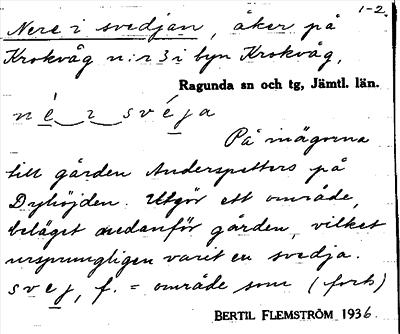 1-2.
Nere i svedjan, åker på
Krokvåg n:r 3 i byn Krokvåg,
Ragunda sn och tg, Jämtl. län.
né i svéja
På inägorna
till gården Anderspetters på
Dyhöjden. Utgör ett område,
beläget nedanför gården, vilket
ursprungligen varit en svedja.
svej, f. = område som (forts)
BERTIL FLEMSTRÖM 1936.